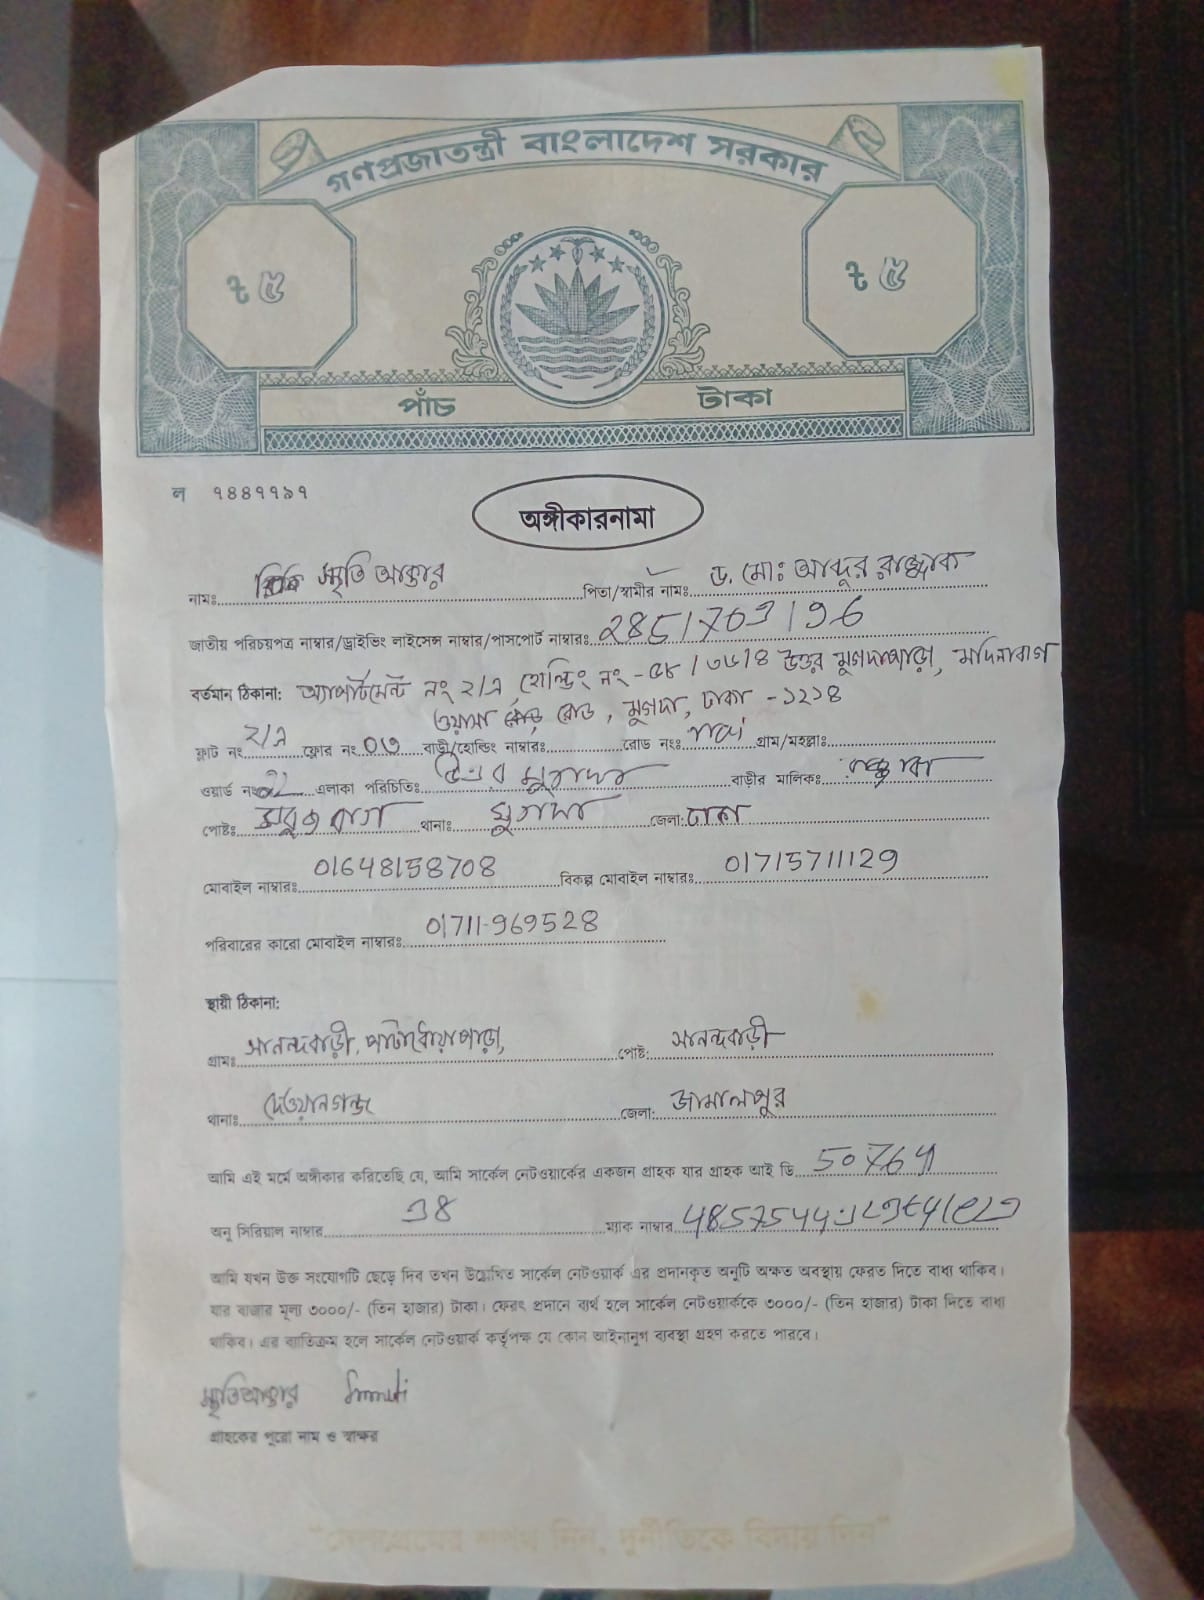 গণপ্রজাতন্ত্রী বাংলাদেশ সরকার
৳ ৫
৳ ৫
পাঁচ টাকা
ল ৭৪৪৭৭৯৭
অঙ্গীকারনামা
নামঃ স্মৃতি আক্তার পিতা/স্বামীর নামঃ ড. মোঃ আব্দুর রাজ্জাক
জাতীয় পরিচয়পত্র নাম্বার/ড্রাইভিং লাইসেন্স নাম্বার/পাসপোর্ট নাম্বারঃ
বর্তমান ঠিকানা: অ্যাপার্টমেন্ট নং ২/এ, হোল্ডিং নং - ৫৮/৩৬/৪ উত্তর মুগদাপাড়া, মদিনাবাগ
ওয়াসা রোড, মুগদা, ঢাকা -১২১৪
ফ্লাট নং ২/এ ফ্লোর নং ০৩ বাড়ী/হোল্ডিং নাম্বারঃ রোড নংঃ গ্রাম/মহল্লাঃ
ওয়ার্ড নং এলাকা পরিচিতিঃ উত্তর মুগদা বাড়ীর মালিকঃ
পোষ্টঃ সবুজবাগ থানাঃ মুগদা জেলা: ঢাকা
মোবাইল নাম্বারঃ 01648158708 বিকল্প মোবাইল নাম্বারঃ 01715711129
পরিবারের কারো মোবাইল নাম্বারঃ 01711-969528
স্থায়ী ঠিকানা:
গ্রামঃ সানন্দবাড়ী, পাটাধোয়াপাড়া, পোষ্ট: সানন্দবাড়ী
থানাঃ দেওয়ানগঞ্জ জেলা: জামালপুর
আমি এই মর্মে অঙ্গীকার করিতেছি যে, আমি সার্কেল নেটওয়ার্কের একজন গ্রাহক যার গ্রাহক আই ডি
অনু সিরিয়াল নাম্বার ম্যাক নাম্বার
আমি যখন উক্ত সংযোগটি ছেড়ে দিব তখন উল্লেখিত সার্কেল নেটওয়ার্ক এর প্রদানকৃত অনুটি অক্ষত অবস্থায় ফেরত দিতে বাধ্য থাকিব।
যার বাজার মূল্য ৩০০০/- (তিন হাজার) টাকা। ফেরৎ প্রদানে ব্যর্থ হলে সার্কেল নেটওয়ার্ককে ৩০০০/- (তিন হাজার) টাকা দিতে বাধ্য
থাকিব। এর ব্যতিক্রম হলে সার্কেল নেটওয়ার্ক কর্তৃপক্ষ যে কোন আইনানুগ ব্যবস্থা গ্রহণ করতে পারবে।
স্মৃতি আক্তার Smriti
গ্রাহকের পুরো নাম ও স্বাক্ষর
"দেশপ্রেমের শপথ নিন, দুর্নীতিকে বিদায় দিন"